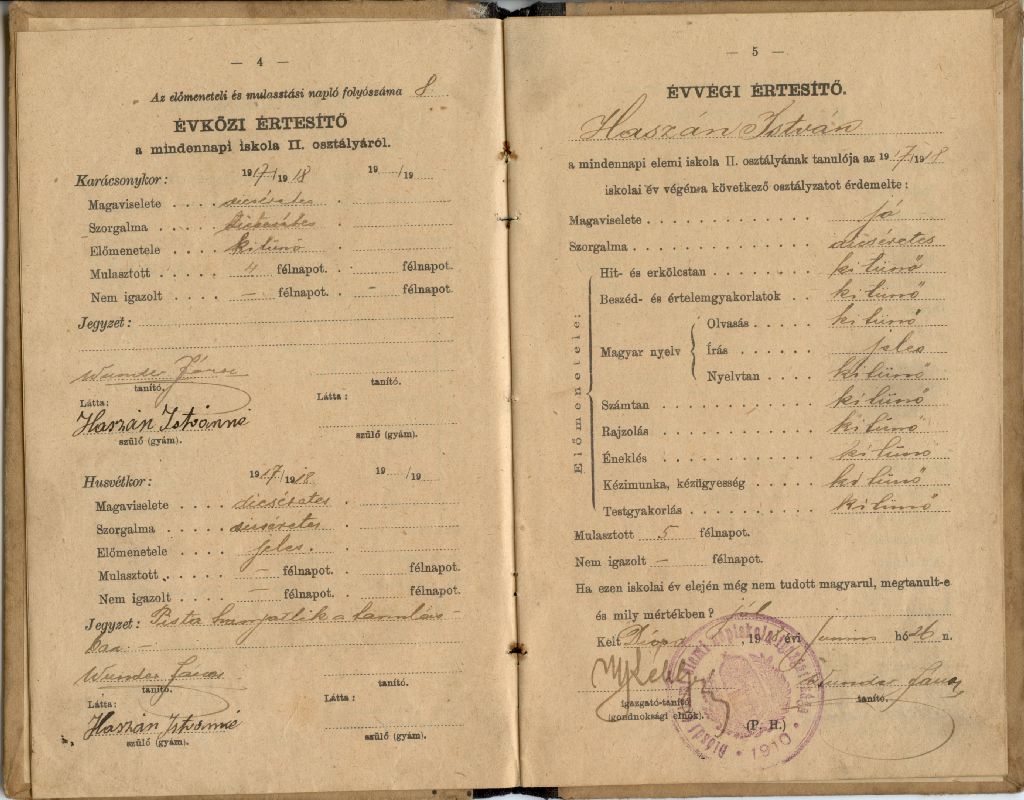 — 4 —
Az előmeneteli és mulasztási napló folyószáma 8
ÉVKÖZI ÉRTESÍTŐ
a mindennapi iskola II. osztályáról.
Karácsonykor: 1917/1918 19 /19
Magaviselete dicséretes
Szorgalma dicséretes
Előmenetele kitünő
Mulasztott 4 félnapot. félnapot.
Nem igazolt — félnapot. – félnapot.
Jegyzet:
Wunder János
tanító. tanító.
Látta: Látta:
Haszán Istvánné
szülő (gyám). szülő (gyám).
Husvétkor: 1917/1918 19 /19
Magaviselete dicséretes
Szorgalma dicséretes
Előmenetele jeles.
Mulasztott — félnapot. félnapot.
Nem igazolt — félnapot. félnapot.
Jegyzet: Pista a tanulás-
ban. –
Wunder János
tanító. tanító.
Látta: Látta:
Haszán Istvánné
szülő (gyám). szülő (gyám).
— 5 —
ÉVVÉGI ÉRTESÍTŐ.
Haszán István
a mindennapi elemi iskola II. osztályának tanulója az 1917/1918
iskolai év végén a következő osztályzatot érdemelte:
Magaviselete jó
Szorgalma dicséretes
Előmenetele:
Hit- és erkölcstan kitünő
Beszéd- és értelemgyakorlatok kitünő
Magyar nyelv
Olvasás kitünő
Írás jeles
Nyelvtan kitünő
Számtan kitünő
Rajzolás kitünő
Éneklés kitünő
Kézimunka, kézügyesség kitünő
Testgyakorlás kitünő
Mulasztott 5 félnapot.
Nem igazolt — félnapot.
Ha ezen iskolai év elején még nem tudott magyarul, megtanult-e
és mily mértékben? jól
Kelt Diósd, 1918 évi junius hó 26 n.
Wunder János
igazgató-tanító tanító.
(gondnoksági elnök).
(P. H.)
1910